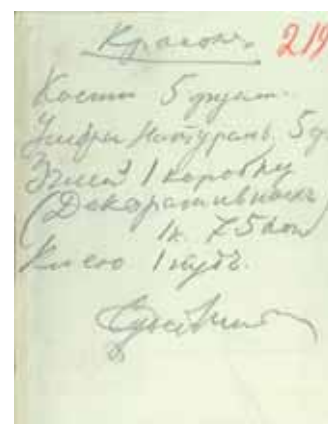 Красокъ 219
Кости 5 фунт.
Умбры Натураль. 5 ф
1 коробку
(Декоративныхъ)
1 к. 75 коп
Клею 1 пудъ.